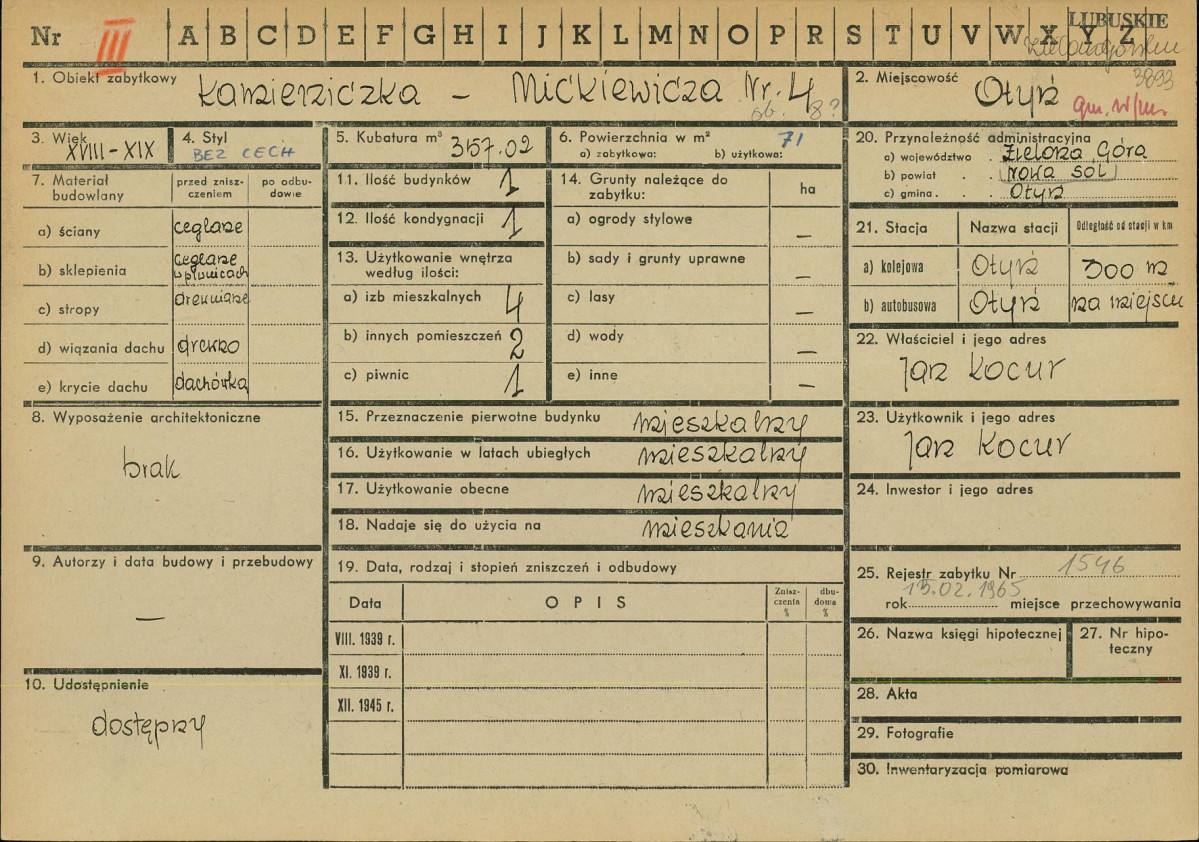 Nr III A B C D E F G H I J K L M N O P R S T U V W X Y Z LUBUSKIE
3893
1. Obiekt zabytkowy Kamieniczka – Mickiewicza Nr. 4
ob. 8?
2. Miejscowość Otyń
gm. w/m.
3. Wiek XVIII-XIX
4. Styl BEZ CECH
5. Kubatura m³ 357.02
6. Powierzchnia w m² 71
a) zabytkowa: b) użytkowa:
7. Materiał budowlany
przed zniszczeniem
po odbudowie
a) ściany ceglane
b) sklepienia ceglane w piwnicach
c) stropy drewniane
d) wiązania dachu drewno
e) krycie dachu dachówka
8. Wyposażenie architektoniczne
brak
9. Autorzy i data budowy i przebudowy
—
10. Udostępnienie
dostępny
11. Ilość budynków 1
12. Ilość kondygnacji 1
13. Użytkowanie wnętrza według ilości:
a) izb mieszkalnych 4
b) innych pomieszczeń 2
c) piwnic 1
14. Grunty należące do zabytku: ha
a) ogrody stylowe –
b) sady i grunty uprawne –
c) lasy –
d) wody –
e) inne –
15. Przeznaczenie pierwotne budynku mieszkalny
16. Użytkowanie w latach ubiegłych mieszkalny
17. Użytkowanie obecne mieszkalny
18. Nadaje się do użycia na mieszkania
19. Data, rodzaj i stopień zniszczeń i odbudowy
Data OPIS Zniszczenia % dbudowa %
VIII. 1939 r.
XI. 1939 r.
XII. 1945 r.
20. Przynależność administracyjna
a) województwo . Zielona Góra
b) powiat . . Nowa Sól
c) gmina . . Otyń
21. Stacja Nazwa stacji Odległość od stacji w km
a) kolejowa Otyń 300 m
b) autobusowa Otyń na miejscu
22. Właściciel i jego adres
Jan Kocur
23. Użytkownik i jego adres
Jan Kocur
24. Inwestor i jego adres
25. Rejestr zabytku Nr 1546
rok 15.02.1965 miejsce przechowywania
26. Nazwa księgi hipotecznej
27. Nr hipoteczny
28. Akta
29. Fotografie
30. Inwentaryzacja pomiarowa